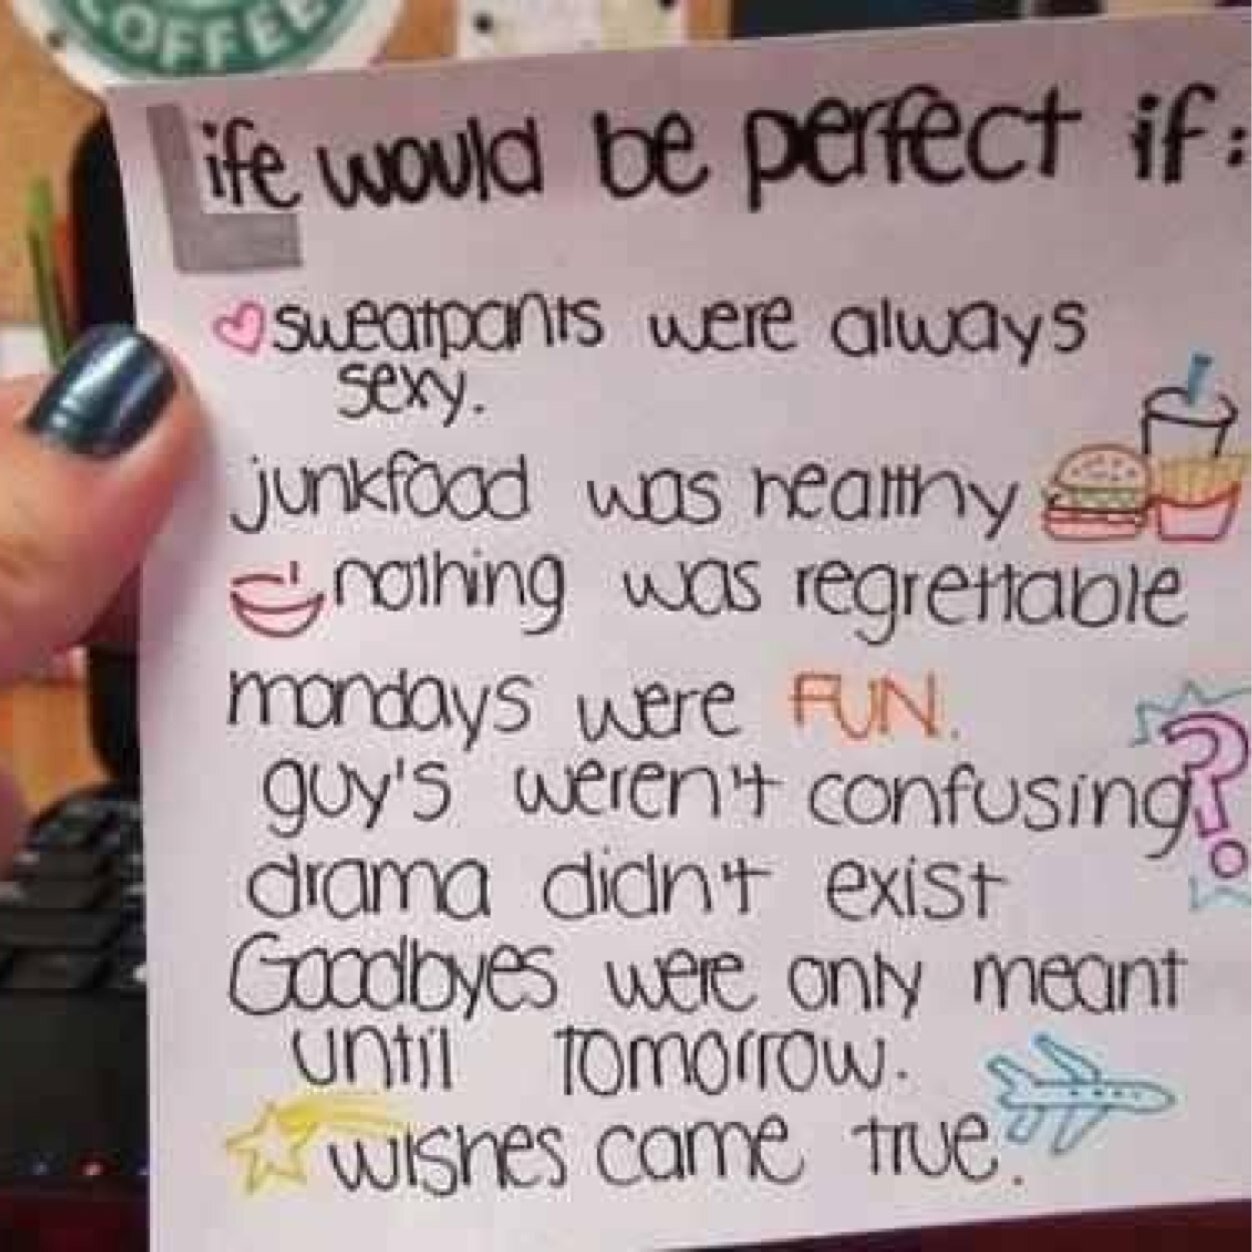 COFFEE
Life would be perfect if:
sweatpants were always
sexy.
junkfood was healthy
nothing was regrettable
mondays were FUN.
guy's weren't confusing?
drama didn't exist
Goodbyes were only meant
until tomorrow.
wishes came true.